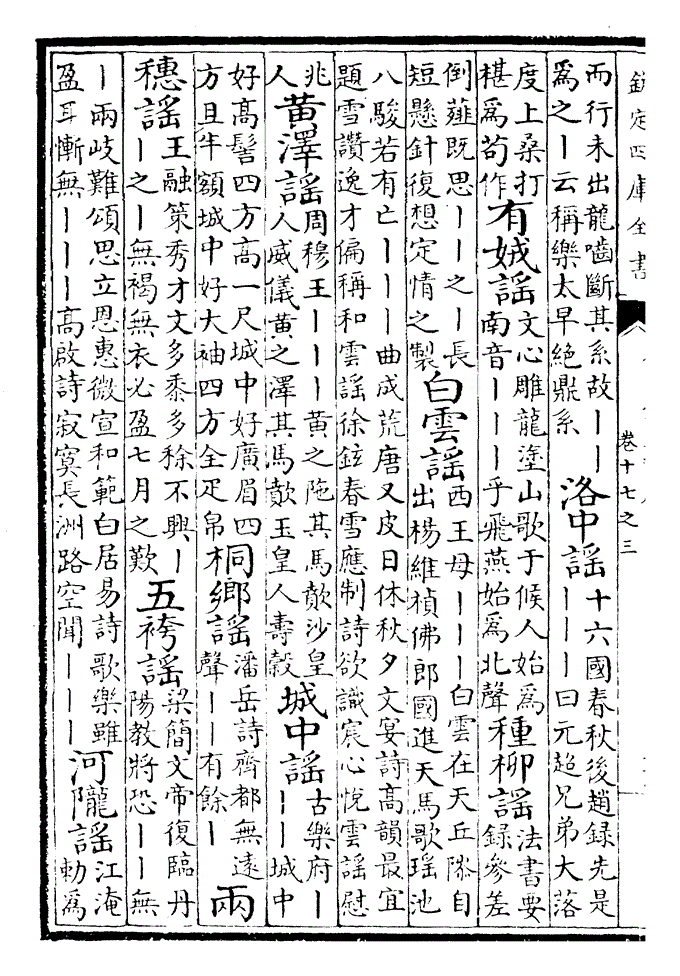 欽定四庫全書
卷十七之三
而行未出龍嚙斷其系故丨丨
爲之丨云稱樂太早絶鼎系
洛中謡
十六國春秋後趙録先是
丨丨丨曰元超兄弟大落
度上桑打
椹爲苟作
有娀謡
文心雕龍塗山歌于候人始爲
南音丨丨丨乎飛燕始爲北聲
種柳謡
法書要
録參差
倒薤既思丨丨之丨長
短懸針復想定情之製
白雲謡
西王母丨丨丨白雲在天丘陵自
出楊維楨佛郎國進天馬歌瑶池
八駿若有亡丨丨丨曲成荒唐又皮日休秋夕文宴詩高韻最宜
題雪讚逸才偏稱和雲謡徐鉉春雪應制詩欲識宸心悅雲謡慰
兆
人
黄澤謡
周穆王丨丨丨黄之陁其馬歕沙皇
人威儀黄之澤其馬歕玉皇人壽穀
城中謡
古樂府丨
丨丨城中
好髙髻四方髙一尺城中好廣眉四
方且半額城中好大袖四方全疋帛
桐鄉謡
潘岳詩齊都無遠
聲丨丨有餘丨
兩
穗謡
王融策秀才文多黍多稌不興丨
丨之丨無褐無衣必盈七月之歎
五袴謡
梁簡文帝復臨丹
陽教將恐丨丨無
丨兩岐難頌思立恩惠微宣和範白居易詩歌樂雖
盈耳慚無丨丨丨高啟詩寂寞長洲路空聞丨丨丨
河隴謡
江淹
勅爲